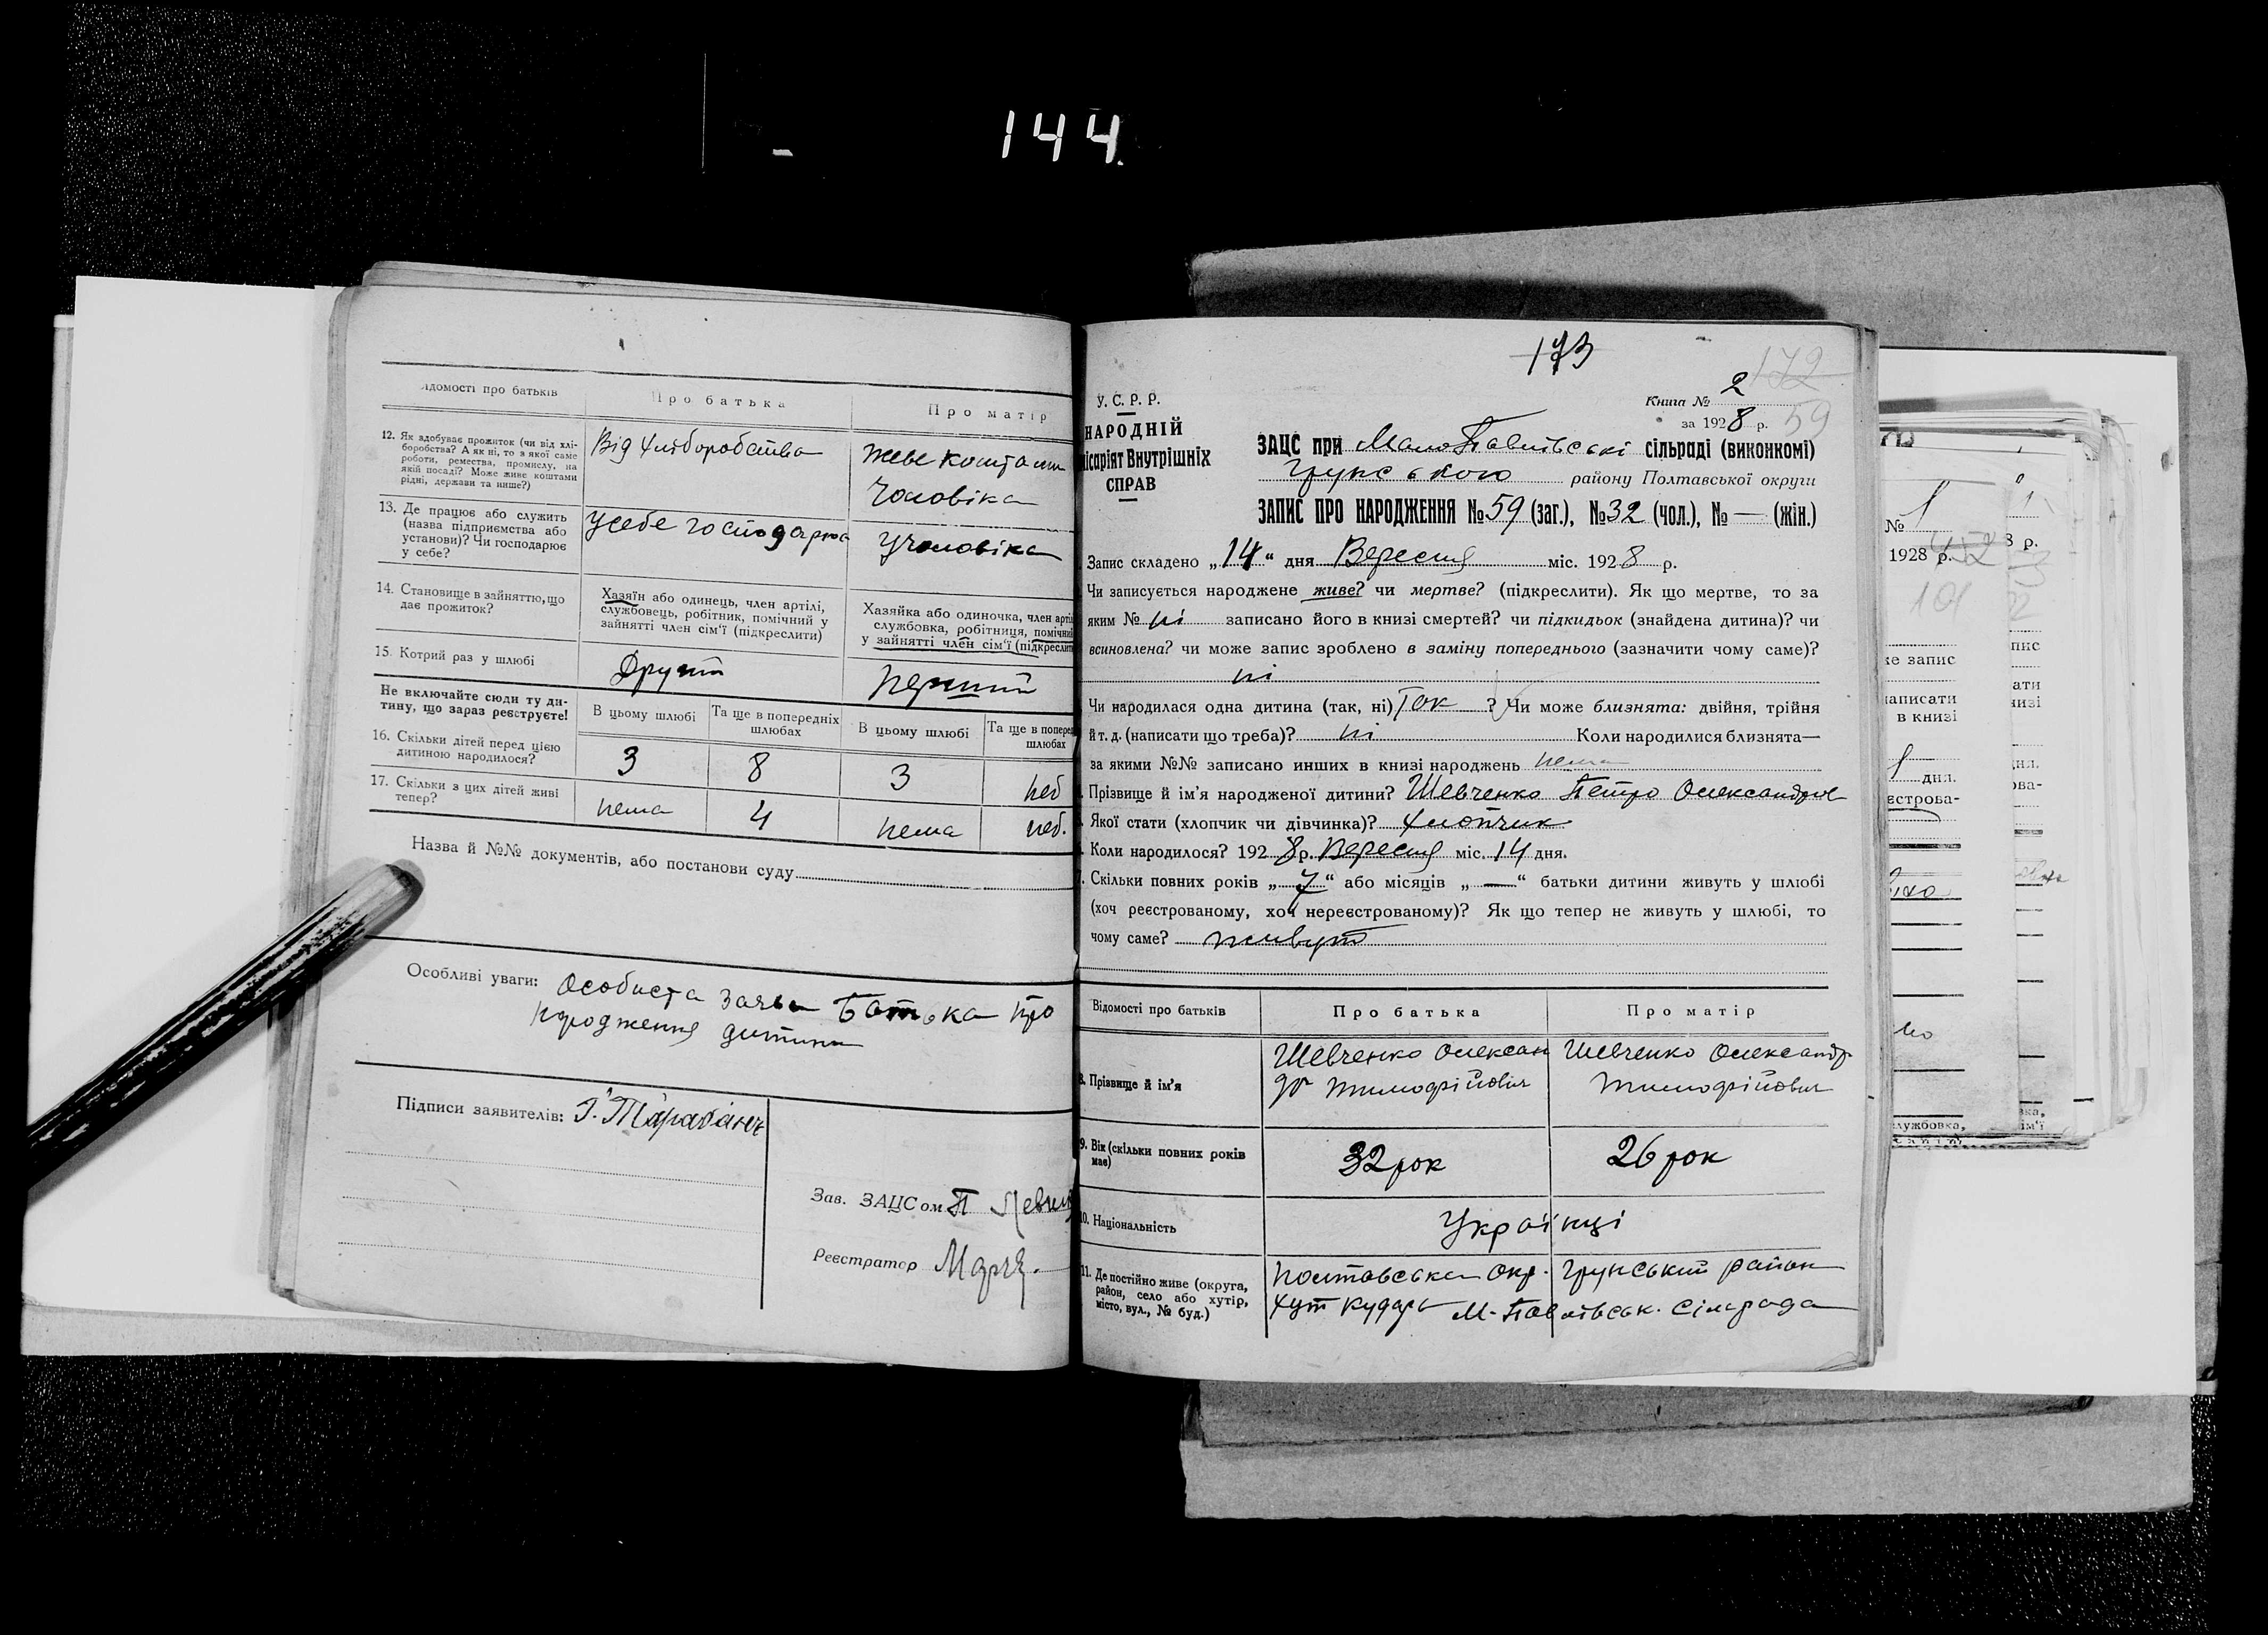 144.
Відомості про батьків
Про батька
Про матір
12. Як здобуває прожиток (чи від хлі-
боробства? А як ні, то з якої саме
роботи, ремества, промислу, на
якій посаді? Може живе коштами
рідні, держави та инше?)
Від хліборобства
живе коштами
чоловіка
13. Де працює або служить
(назва підприємства або
установи)? Чи господарює
у себе?
У себе господарює
У чоловіка
14. Становище в зайняттю, що
дає прожиток?
Хазяїн або одинець, член артілі,
службовець, робітник, помічний у
зайнятті член сім'ї (підкреслити)
Хазяйка або одиночка, член арті
службовка, робітниця, помічни
у зайнятті член сім'ї (підкреслит
15. Котрий раз у шлюбі
Другий
Перший
Не включайте сюди ту ди-
тину, що зараз реєструєте!
В цьому шлюбі
Та ще в попередніх
шлюбах
В цьому шлюбі
Та ще в попере
шлюбах
16. Скільки дітей перед цією
дитиною народилося?
3
8
3
неб
17. Скільки з цих дітей живі
тепер?
нема
4
нема
неб.
Назва й №№ документів, або постанови суду
Особливі уваги: Особиста заява Батька про
народження дитини
Підписи заявителів:
Зав. ЗАЦСом П
Реєстратор
173
172
Книга № 2
за 1928 р. 59
У. С. Р. Р.
НАРОДНІЙ
місаріят Внутрішніх
СПРАВ
ЗАЦС при МалоПавлівські сільраді (виконкомі)
Грунського району Полтавської округи
ЗАПИС ПРО НАРОДЖЕННЯ №59 (заг.), №32 (чол.), № — (жін.)
Запис складено „14“ дня Вересня міс. 1928 р.
Чи записується народжене живе? чи мертве? (підкреслити). Як що мертве, то за
яким № ні записано його в книзі смертей? чи підкидьок (знайдена дитина)? чи
всиновлена? чи може запис зроблено в заміну попереднього (зазначити чому саме)?
ні
Чи народилася одна дитина (так, ні) Так ? Чи може близнята: двійня, трійня
й т. д. (написати що треба)? ні Коли народилися близнята—
за якими №№ записано инших в книзі народжень нема
Прізвище й ім'я народженої дитини? Шевченко Петро Олександров
Якої стати (хлопчик чи дівчинка)? хлопчик
Коли народилося? 1928 р. Вересня міс. 14 дня.
Скільки повних років „7“ або місяців „—“ батьки дитини живуть у шлюбі
(хоч реєстрованому, хоч нереєстрованому)? Як що тепер не живуть у шлюбі, то
чому саме? живут
Відомості про батьків
Про батька
Про матір
8. Прізвище й ім'я
Шевченко Олексан
др Тимофійович
Шевченко Олександр
Тимофійович
9. Вік (скільки повних років
має)
32 рок
26 рок
10. Національність
Українці
11. Де постійно живе (округа,
район, село або хутір,
місто, вул., № буд.)
Полтавська Окр. Грунський район
хут Кударь М-Павлівськ. Сільрада
№ 1
1928 р.
101
8 р.
1
же запис
записати
в книзі
дня.
естрова-
службовка,
пис
ати
низі
дня.
ова-
вка,
ім'ї